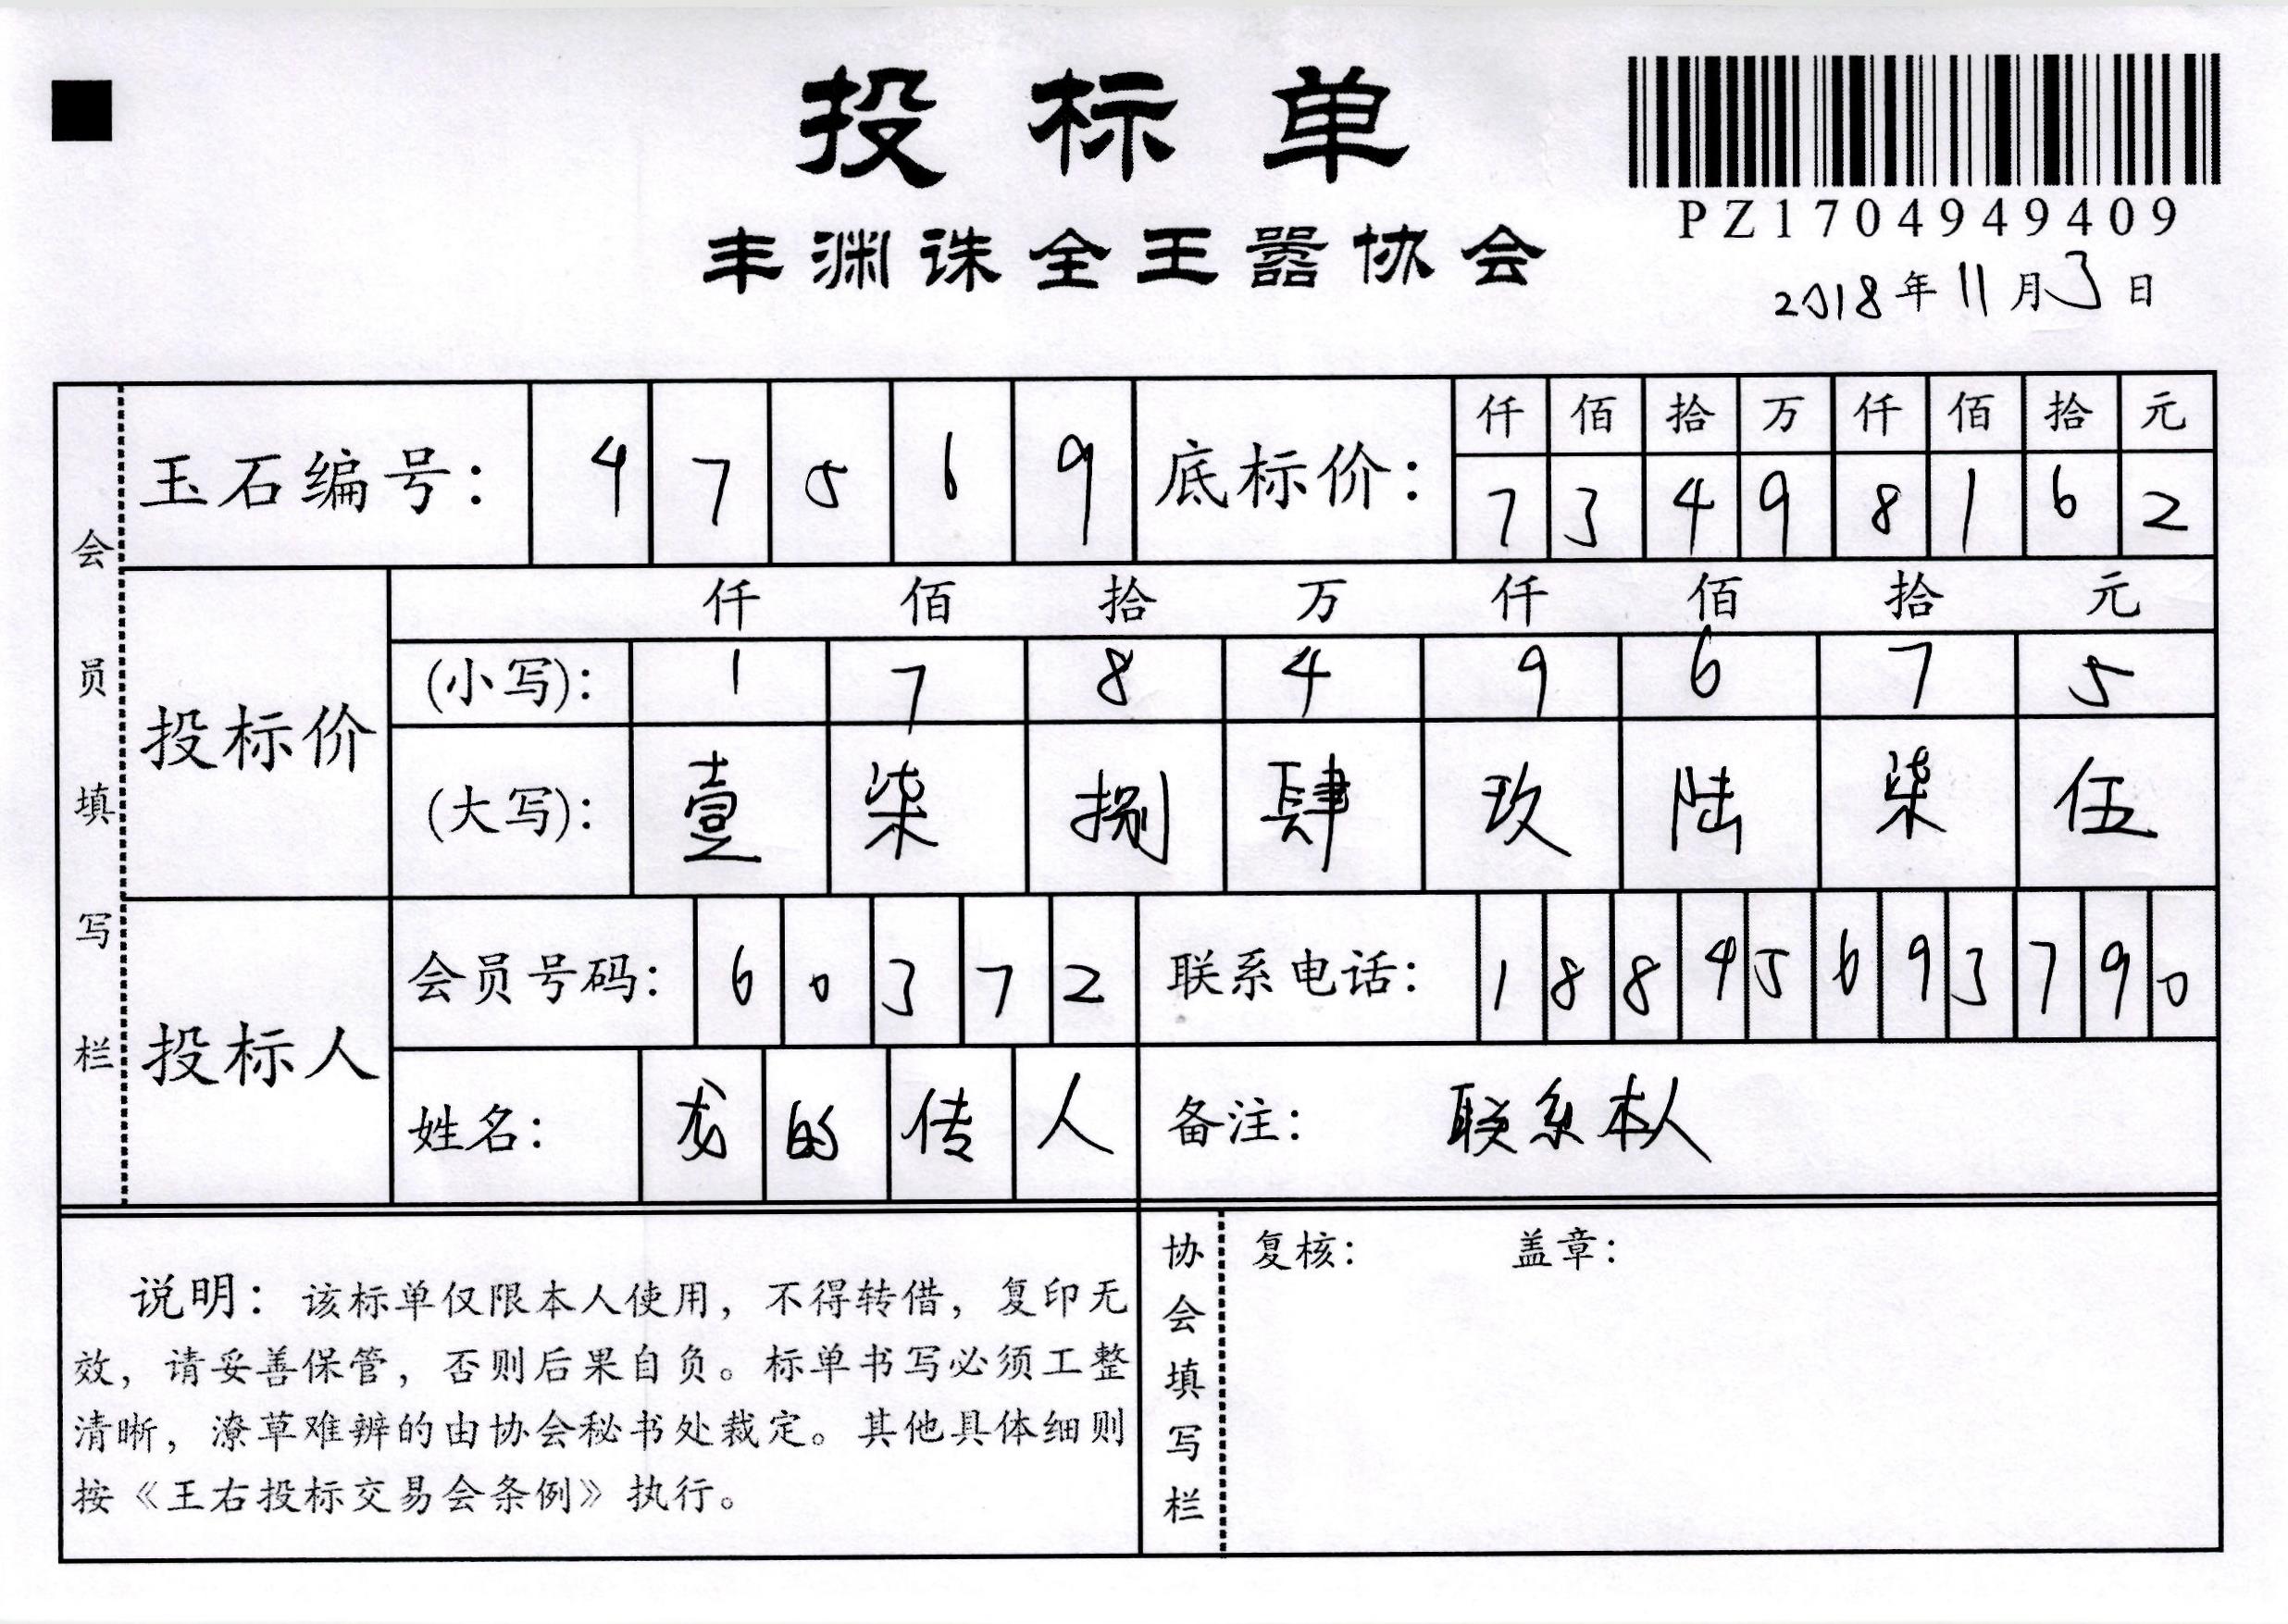 投标单
PZ1704949409
丰渊诛全王嚣协会
2018年11月3日
会员填写栏
玉石编号: 4 7 5 6 9
底标价: 仟 佰 拾 万 仟 佰 拾 元
7 3 4 9 8 1 6 2
投标价
仟 佰 拾 万 仟 佰 拾 元
(小写): 1 7 8 4 9 6 7 5
(大写): 壹 柒 捌 肆 玖 陆 柒 伍
投标人
会员号码: 6 0 3 7 2
联系电话: 1 8 8 4 5 6 9 3 7 9 0
姓名: 龙 的 传 人
备注: 联系本人
说明: 该标单仅限本人使用, 不得转借, 复印无
效, 请妥善保管, 否则后果自负。标单书写必须工整
清晰, 潦草难辨的由协会秘书处裁定。其他具体细则
按《王右投标交易会条例》执行。
协会填写栏
复核: 盖章: